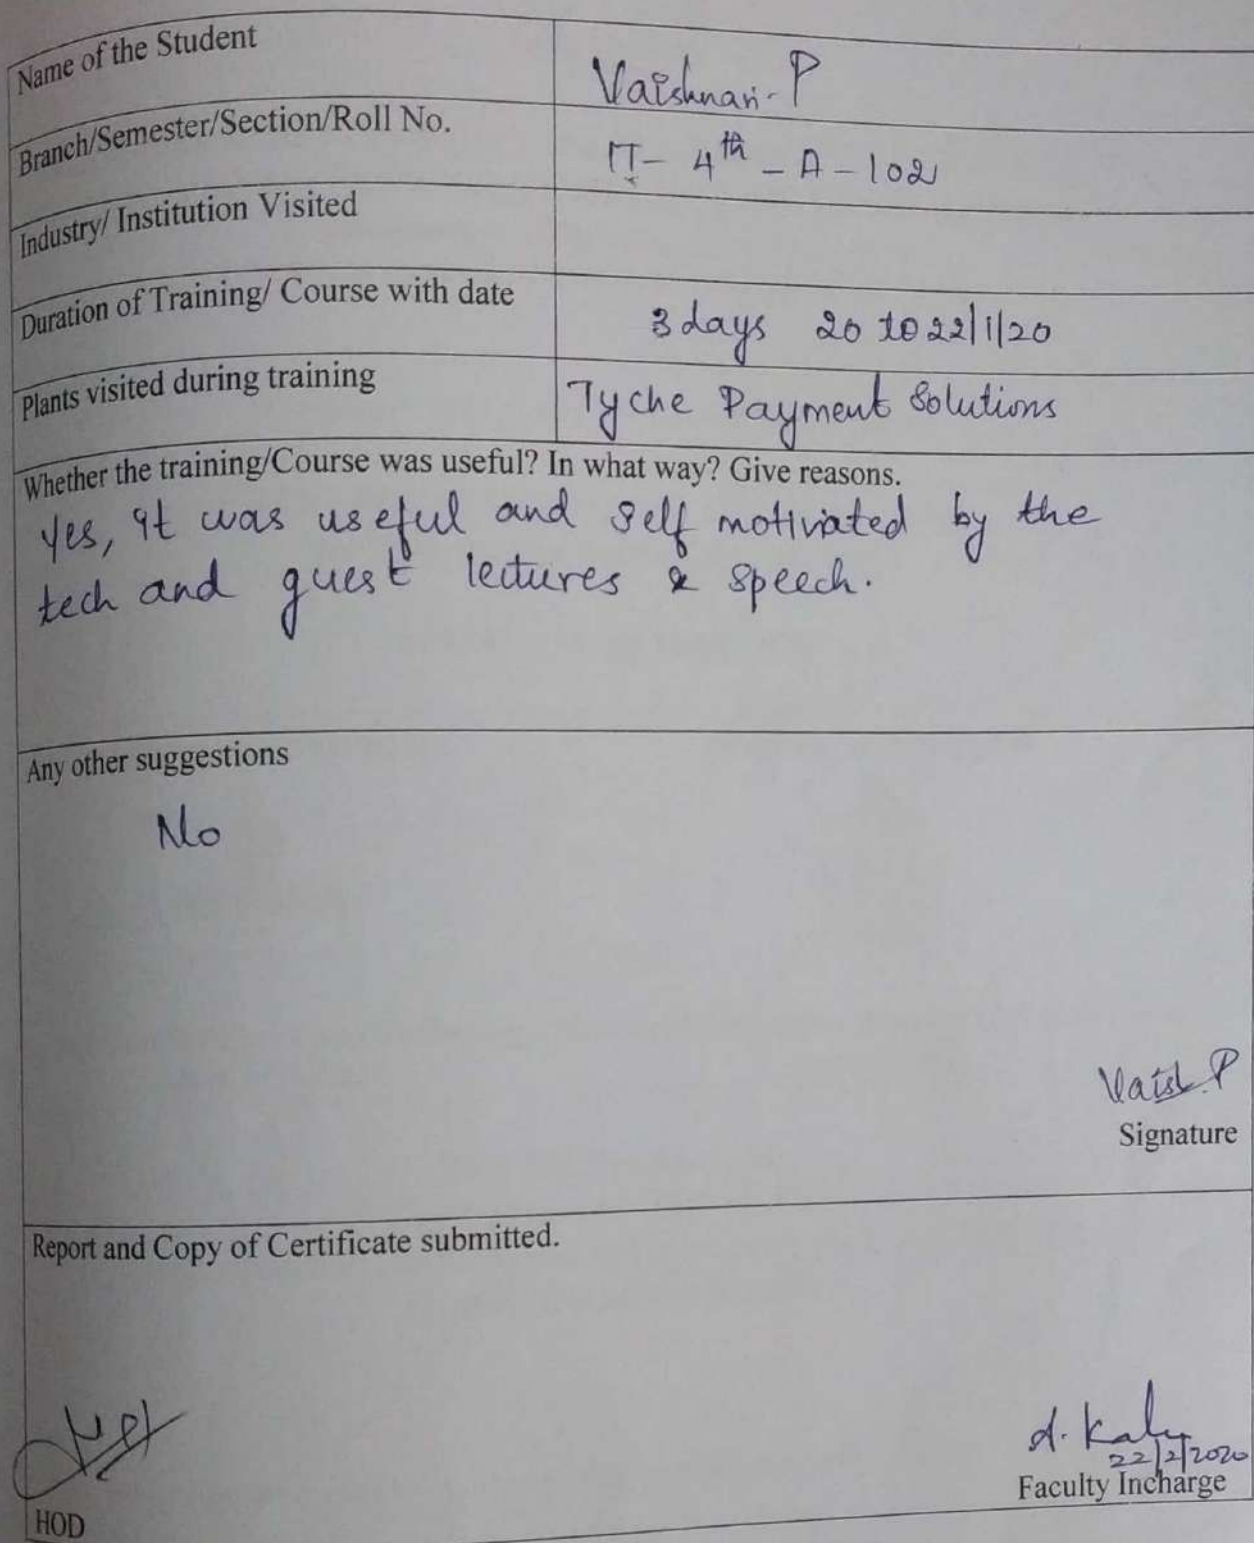 Name of the Student
Vaishnavi. P
Branch/Semester/Section/Roll No.
IT - 4th - A - 102
Industry/ Institution Visited
Duration of Training/ Course with date
3 days 20 to 22/1/20
Plants visited during training
Tyche Payment Solutions
Whether the training/Course was useful? In what way? Give reasons.
Yes, it was useful and self motivated by the
tech and guest lectures & speech.
Any other suggestions
No
Vaish. P
Signature
Report and Copy of Certificate submitted.
22/2/2020
Faculty Incharge
HOD